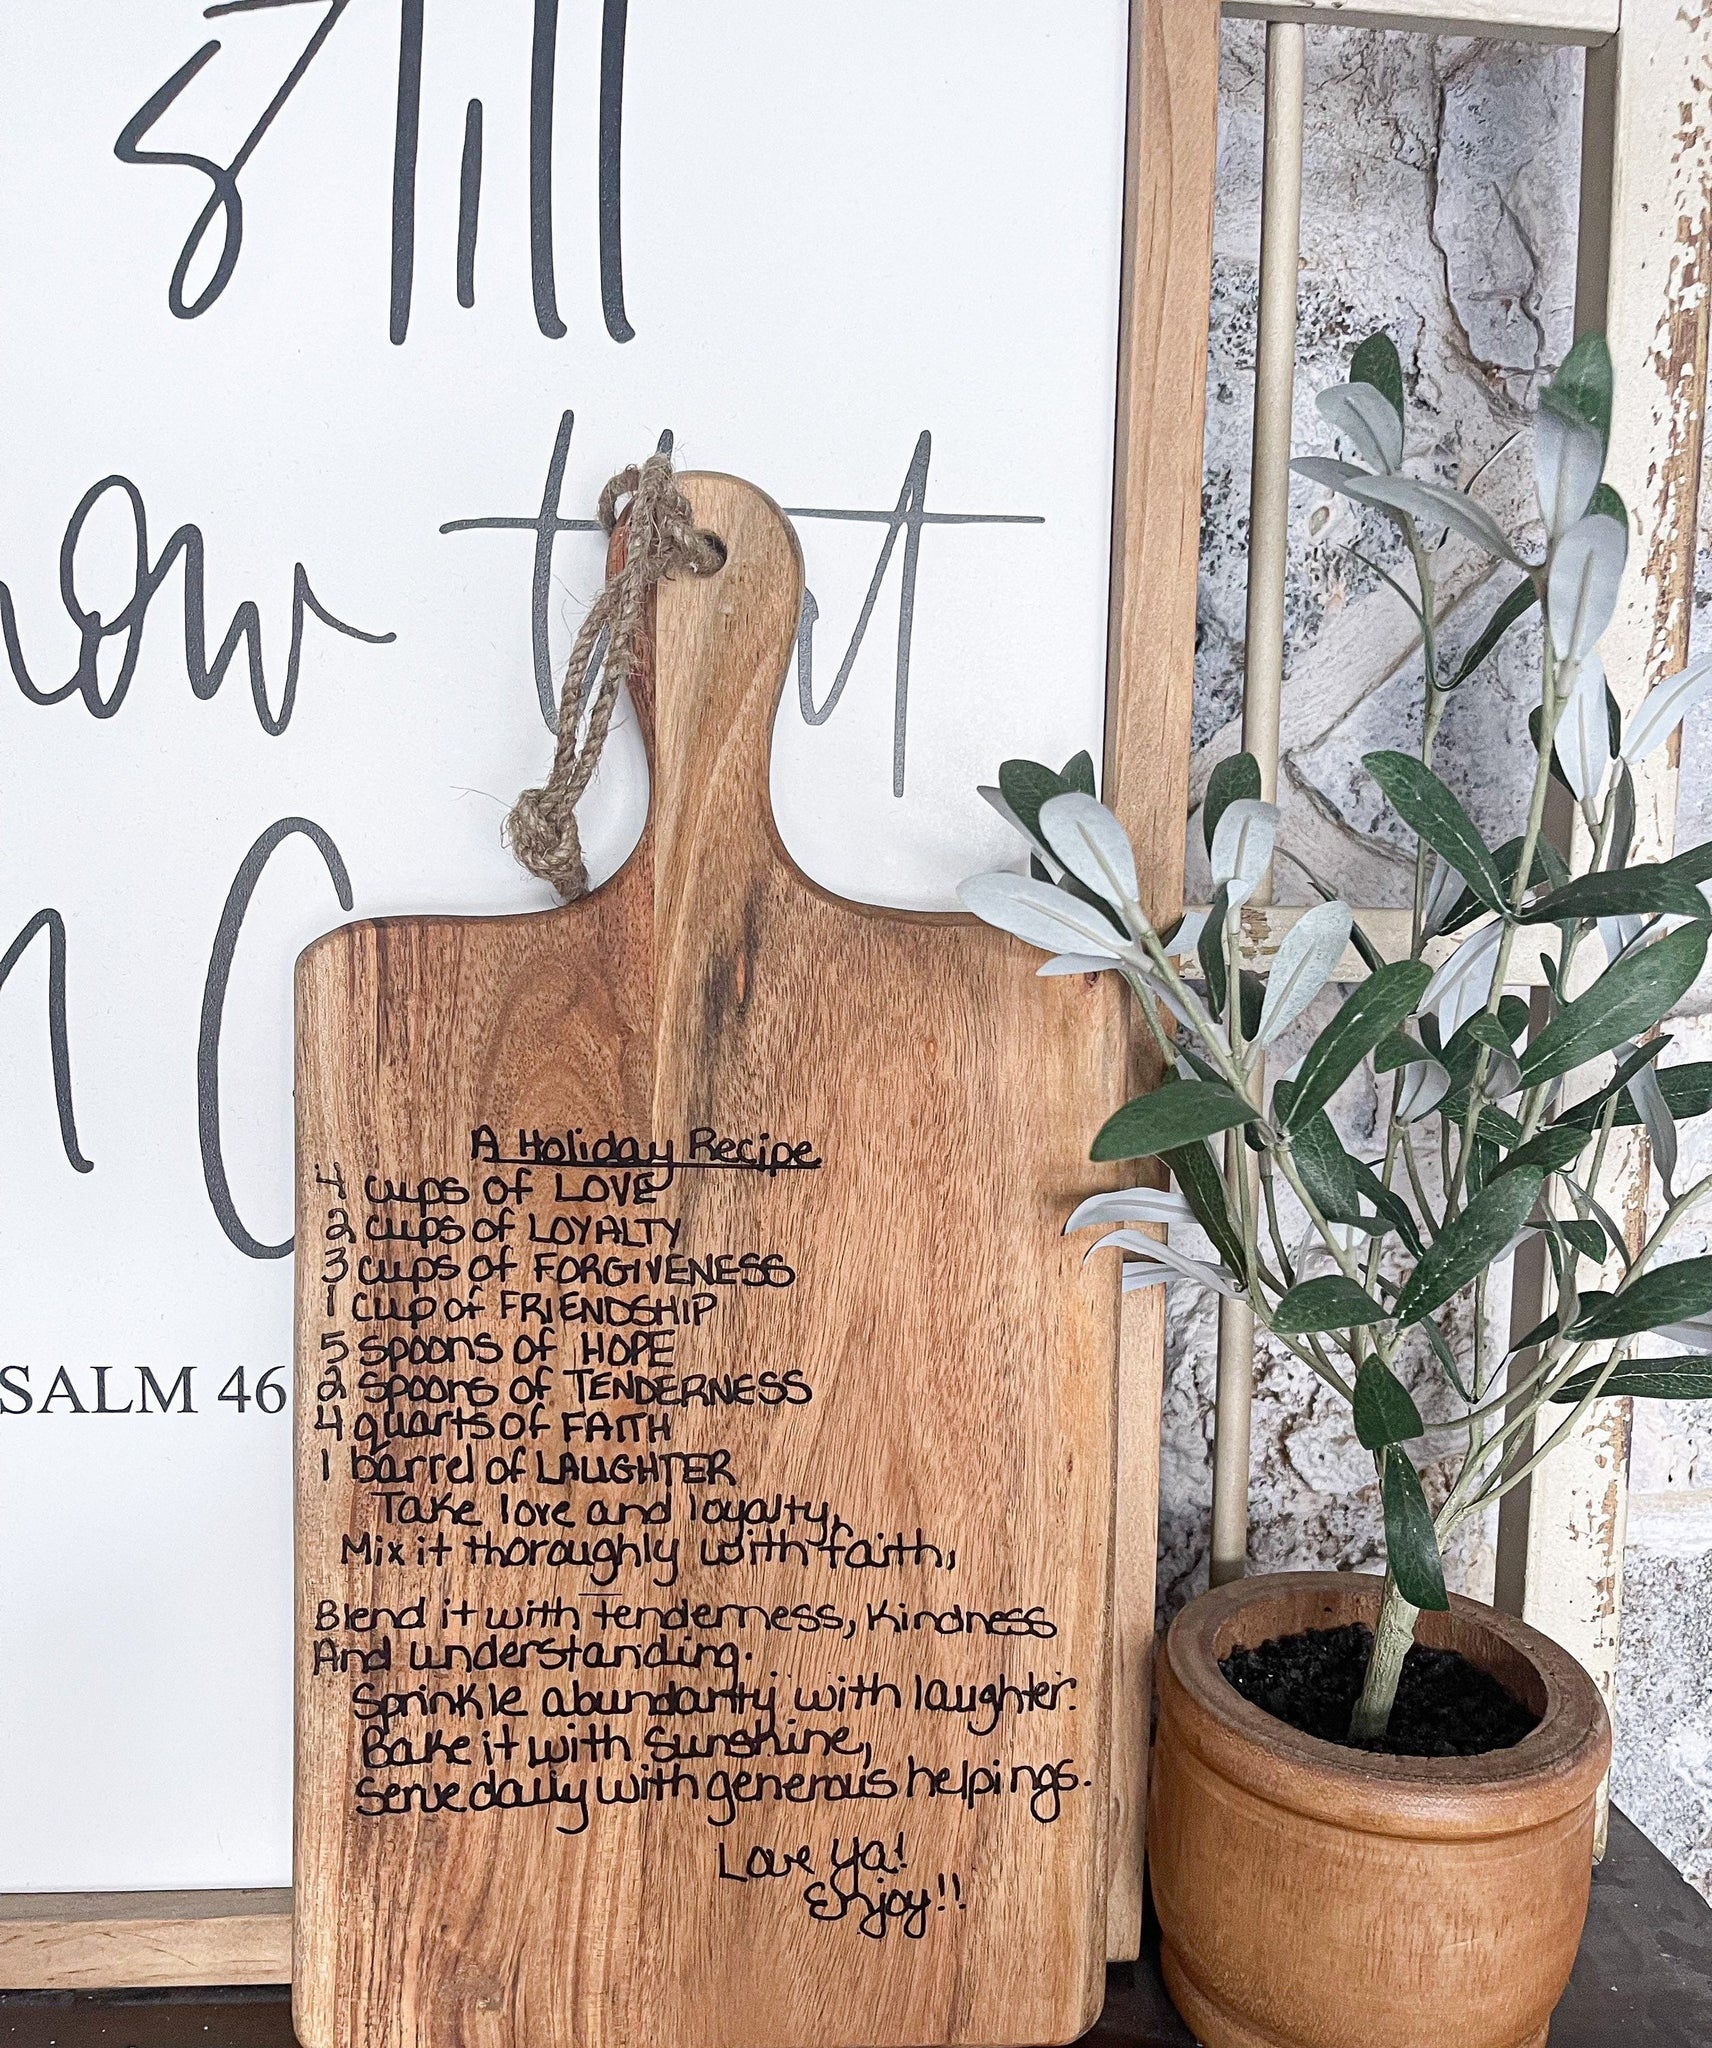 still
now that
SALM 46
A Holiday Recipe
4 cups of LOVE
2 cups of LOYALTY
3 cups of FORGIVENESS
1 cup of FRIENDSHIP
5 spoons of HOPE
2 spoons of TENDERNESS
4 quarts of FAITH
1 barrel of LAUGHTER
Take love and loyalty,
Mix it thoroughly with faith,
Blend it with tenderness, kindness
And understanding.
Sprinkle abundantly with laughter.
Bake it with sunshine,
Serve daily with generous helpings.
Love ya!
Enjoy!!